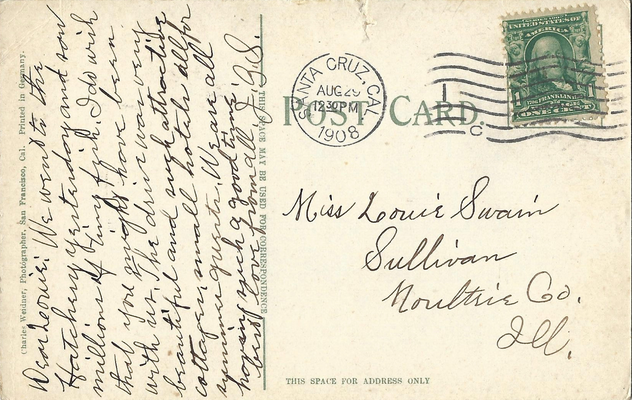 Charles Weidner, Photographer, San Francisco, Cal. Printed in Germany.
Dear Louie: We went to the
Hatchery yesterday and saw
millions of tiny fish. I do wish
that you might have been
with us. The drive was very
beautiful and such attractive
cottages, small hotels all for
summer guests. We are all
hoping such a good time
best love from all J. G. S.
THIS SPACE MAY BE USED FOR CORRESPONDENCE
POST CARD.
SANTA CRUZ, CAL.
AUG 29
12 30 PM
1908
1
C
SERIES 1902
UNITED STATES OF
AMERICA
FRANKLIN
ONE
Miss Louie Swain
Sullivan
Moultrie Co.
Ill.
THIS SPACE FOR ADDRESS ONLY